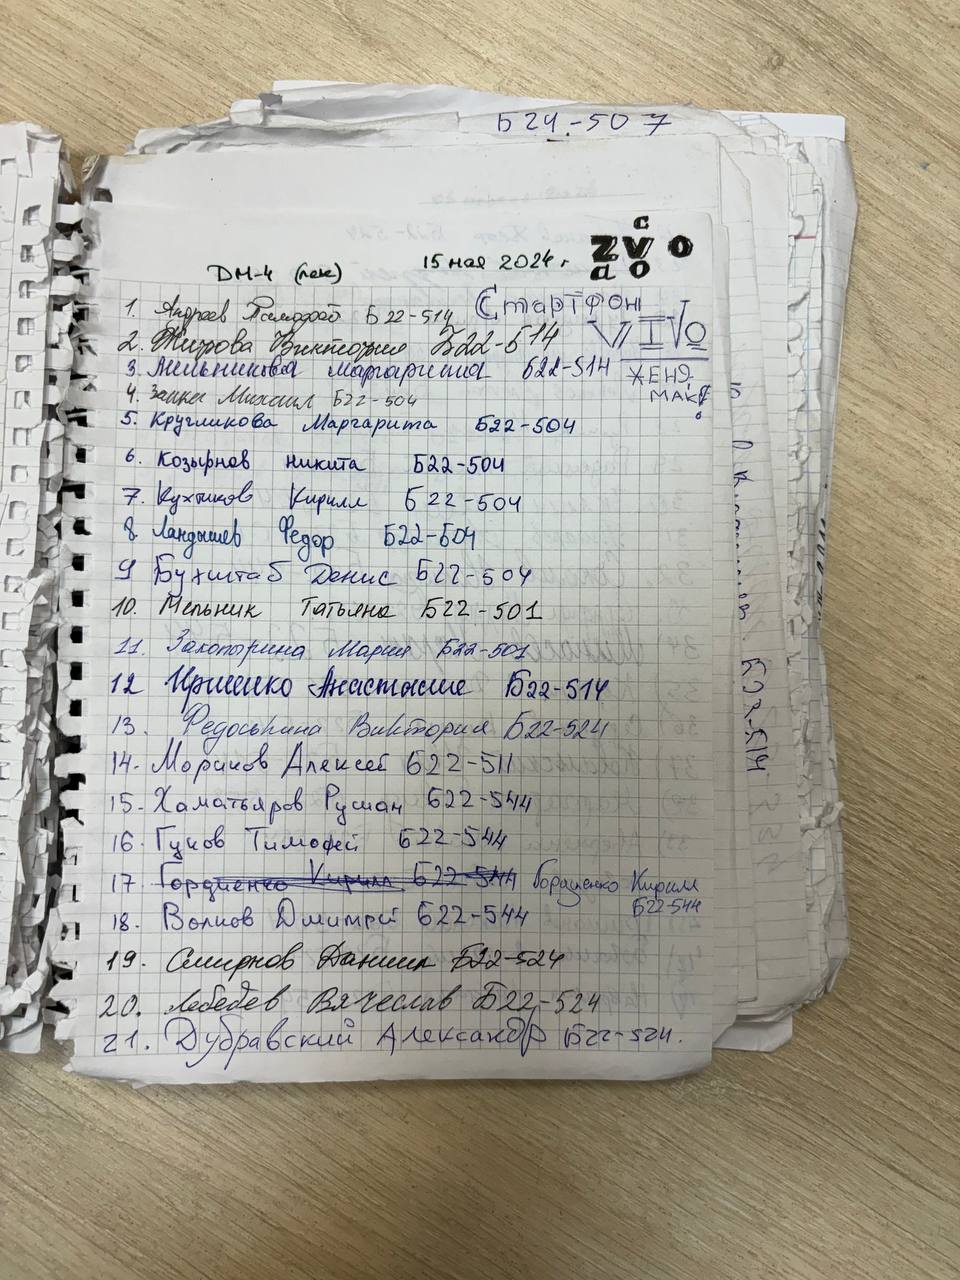 Б24-507
ДМ-4 (лек) 15 мая 2024 г.
Стартфон
VIVO
ЖЕНЯ
МАКС
1. Андреев Тимофей Б22-514
2. Жирова Виктория Б22-514
3. Мельникова Маргарита Б22-514
4. Заика Михаил Б22-504
5. Кругликова Маргарита Б22-504
6. Козырнов Никита Б22-504
7. Кухтиков Кирилл Б22-504
8 Ландышев Федор Б22-504
9 Бухштаб Денис Б22-504
10. Мельник Татьяна Б22-501
11. Захопырина Мария Б22-501
12 Ириенко Анастасия Б22-514
13. Федоськина Виктория Б22-524
14. Моряков Алексей Б22-511
15. Хаматьяров Руслан Б22-544
16. Гуков Тимофей Б22-544
17. Гордиенко Кирилл Б22-544 Гордиенко Кирилл
Б22-544
18. Волков Дмитрий Б22-544
19. Смирнов Даниил Б22-524
20. Лебедев Вячеслав Б22-524
21. Дубравский Александр Б22-524.